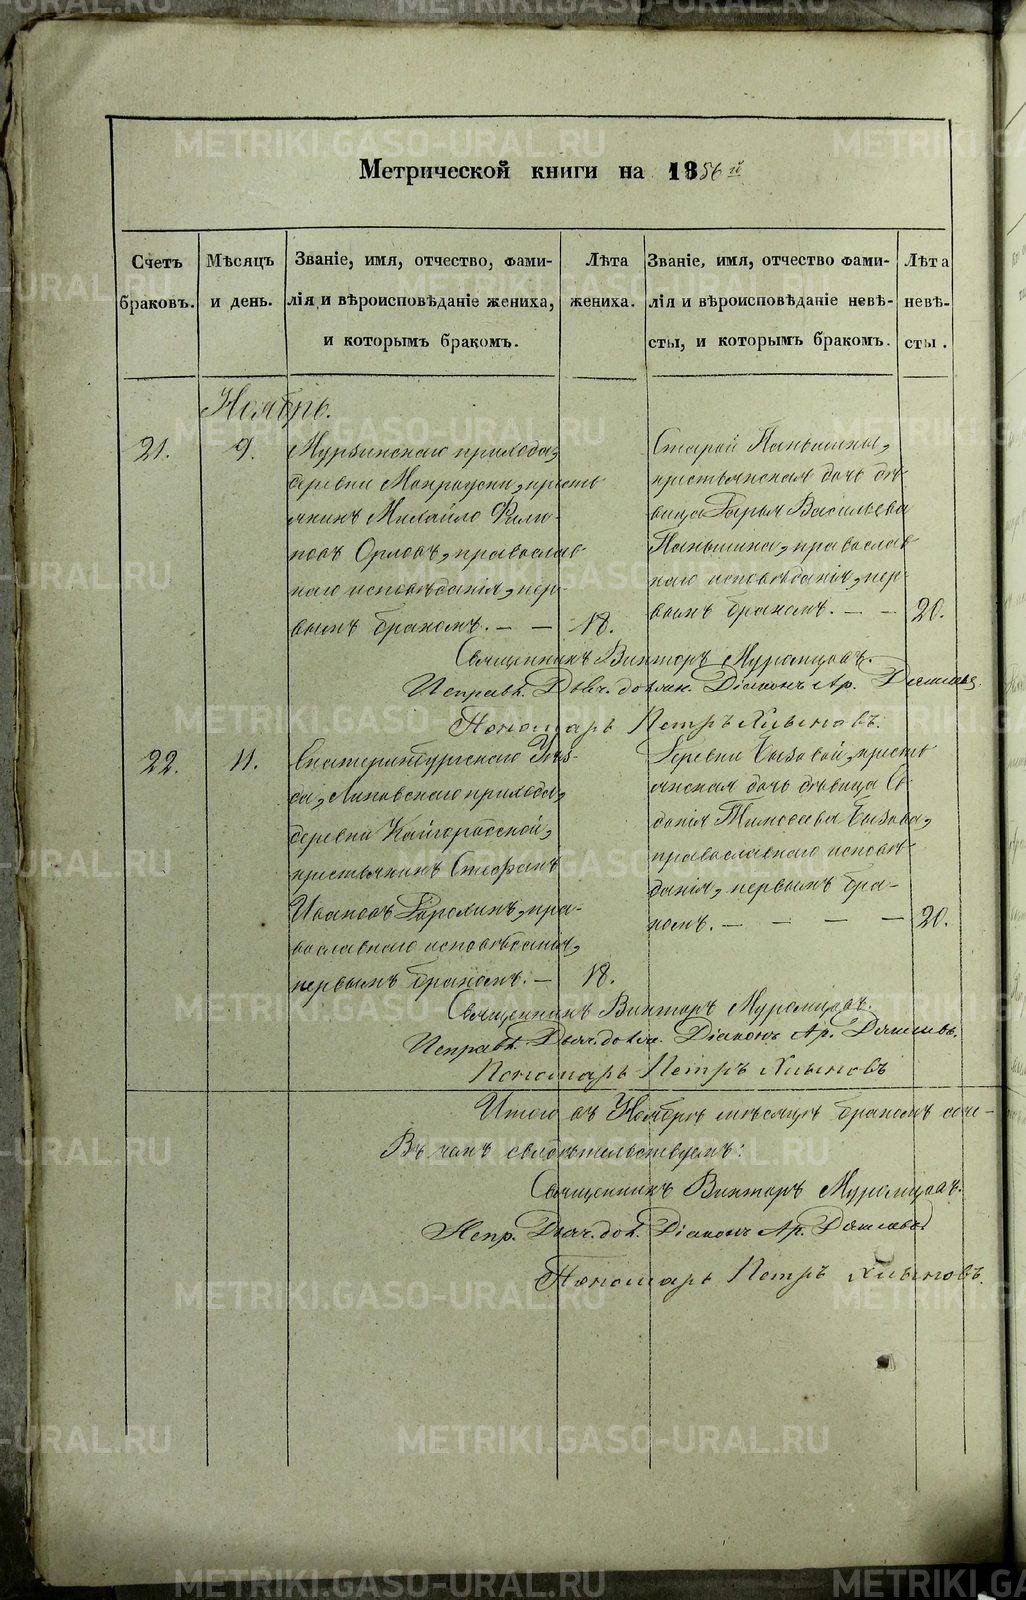 Метрической книги на 1856й
Счетъ браковъ.
Мѣсяцъ и день.
Званіе, имя, отчество, фами-
лія и вѣроисповѣданіе жениха,
и которымъ бракомъ.
Лѣта жениха.
Званіе, имя, отчество фами-
лія и вѣроисповѣданіе невѣ-
сты, и которымъ бракомъ.
Лѣта невѣ-
сты.
Ноябрь.
21.
9.
Мурзинскаго прихода,
деревни Мокроуски, кресть
янинъ Михайло Фили-
повъ Орловъ, православ
наго исповѣданія, пер-
вымъ бракомъ. — —
18.
Старой Паньшины,
крестьянская дочь дѣ-
вица Дарья Васильева
Паньшина, православ
наго исповѣданія, пер-
вымъ бракомъ. — —
20.
Священникъ Викторъ Муромцовъ.
Исправл. Дьяч. должн. Діаконъ Ар.
Пономарь Петръ Хлыновъ.
22.
11.
Екатеринбургскаго Уѣз-
да, Липовскаго прихода,
деревни Кайгородской,
крестьянинъ Стефанъ
Ивановъ пра-
вославнаго исповѣданія,
первымъ бракомъ. —
18.
Деревни Бызовой, кресть
янская дочь дѣвица Ев
докія Тимофеева Бызова,
православнаго исповѣ
данія, первымъ бра-
комъ. — — — —
20.
Священникъ Викторъ Муромцовъ.
Исправл. Дьяч. должн. Діаконъ Ар.
Пономарь Петръ Хлыновъ
Итого въ Ноябрѣ мѣсяцѣ бракомъ соче-
Въ чемъ свидѣтельствуемъ:
Священникъ Викторъ Муромцовъ.
Испр. Дьяч. дол. Діаконъ Ар.
Пономарь Петръ Хлыновъ.
METRIKI.GASO-URAL.RU